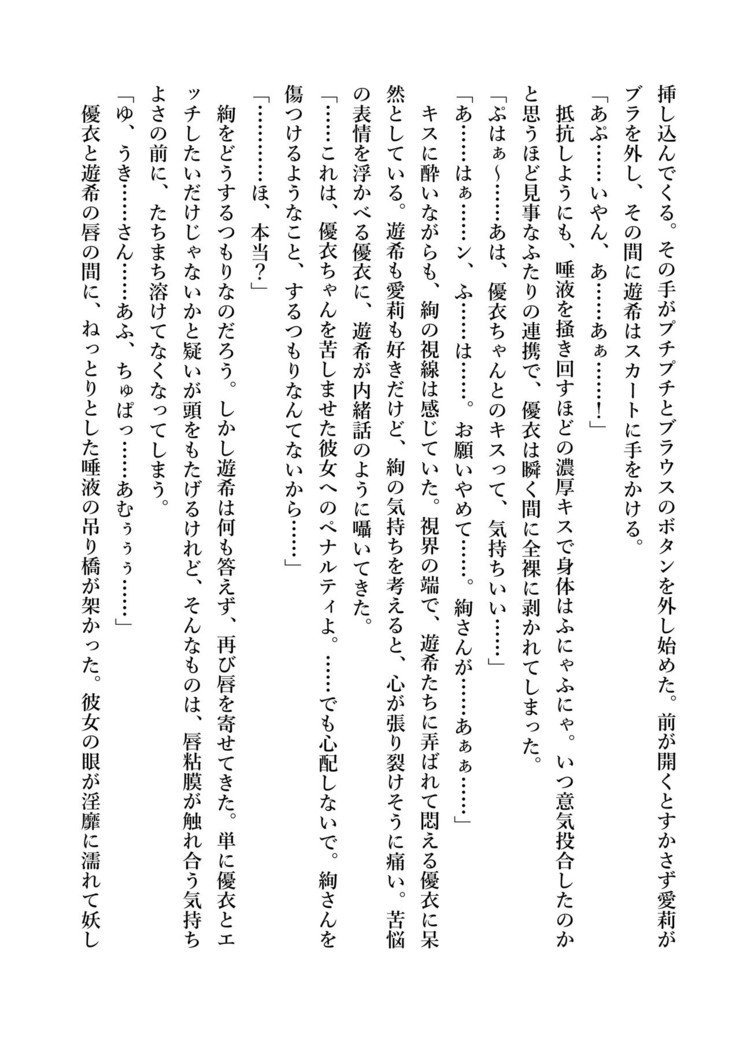 挿し込んでくる。その手がプチプチとブラウスのボタンを外し始めた。前が開くとすかさず愛莉が
ブラを外し、その間に遊希はスカートに手をかける。
「あぷ……いやん、あ……あぁ……！」
抵抗しようにも、唾液を掻き回すほどの濃厚キスで身体はふにゃふにゃ。いつ意気投合したのか
と思うほど見事なふたりの連携で、優衣は瞬く間に全裸に剥かれてしまった。
「ぷはぁ～……あは、優衣ちゃんとのキスって、気持ちいい……」
「あ……はぁ……ン、ふ……は……。お願いやめて……。絢さんが……あぁぁ……」
キスに酔いながらも、絢の視線は感じていた。視界の端で、遊希たちに弄ばれて悶える優衣に呆
然としている。遊希も愛莉も好きだけど、絢の気持ちを考えると、心が張り裂けそうに痛い。苦悩
の表情を浮かべる優衣に、遊希が内緒話のように囁いてきた。
「……これは、優衣ちゃんを苦しませた彼女へのペナルティよ。……でも心配しないで。絢さんを
傷つけるようなこと、するつもりなんてないから……」
「…………ほ、本当？」
絢をどうするつもりなのだろう。しかし遊希は何も答えず、再び唇を寄せてきた。単に優衣とエ
ッチしたいだけじゃないかと疑いが頭をもたげるけれど、そんなものは、唇粘膜が触れ合う気持ち
よさの前に、たちまち溶けてなくなってしまう。
「ゆ、うき……さん……あふ、ちゅぱっ……あむぅぅぅ……」
優衣と遊希の唇の間に、ねっとりとした唾液の吊り橋が架かった。彼女の眼が淫靡に濡れて妖し